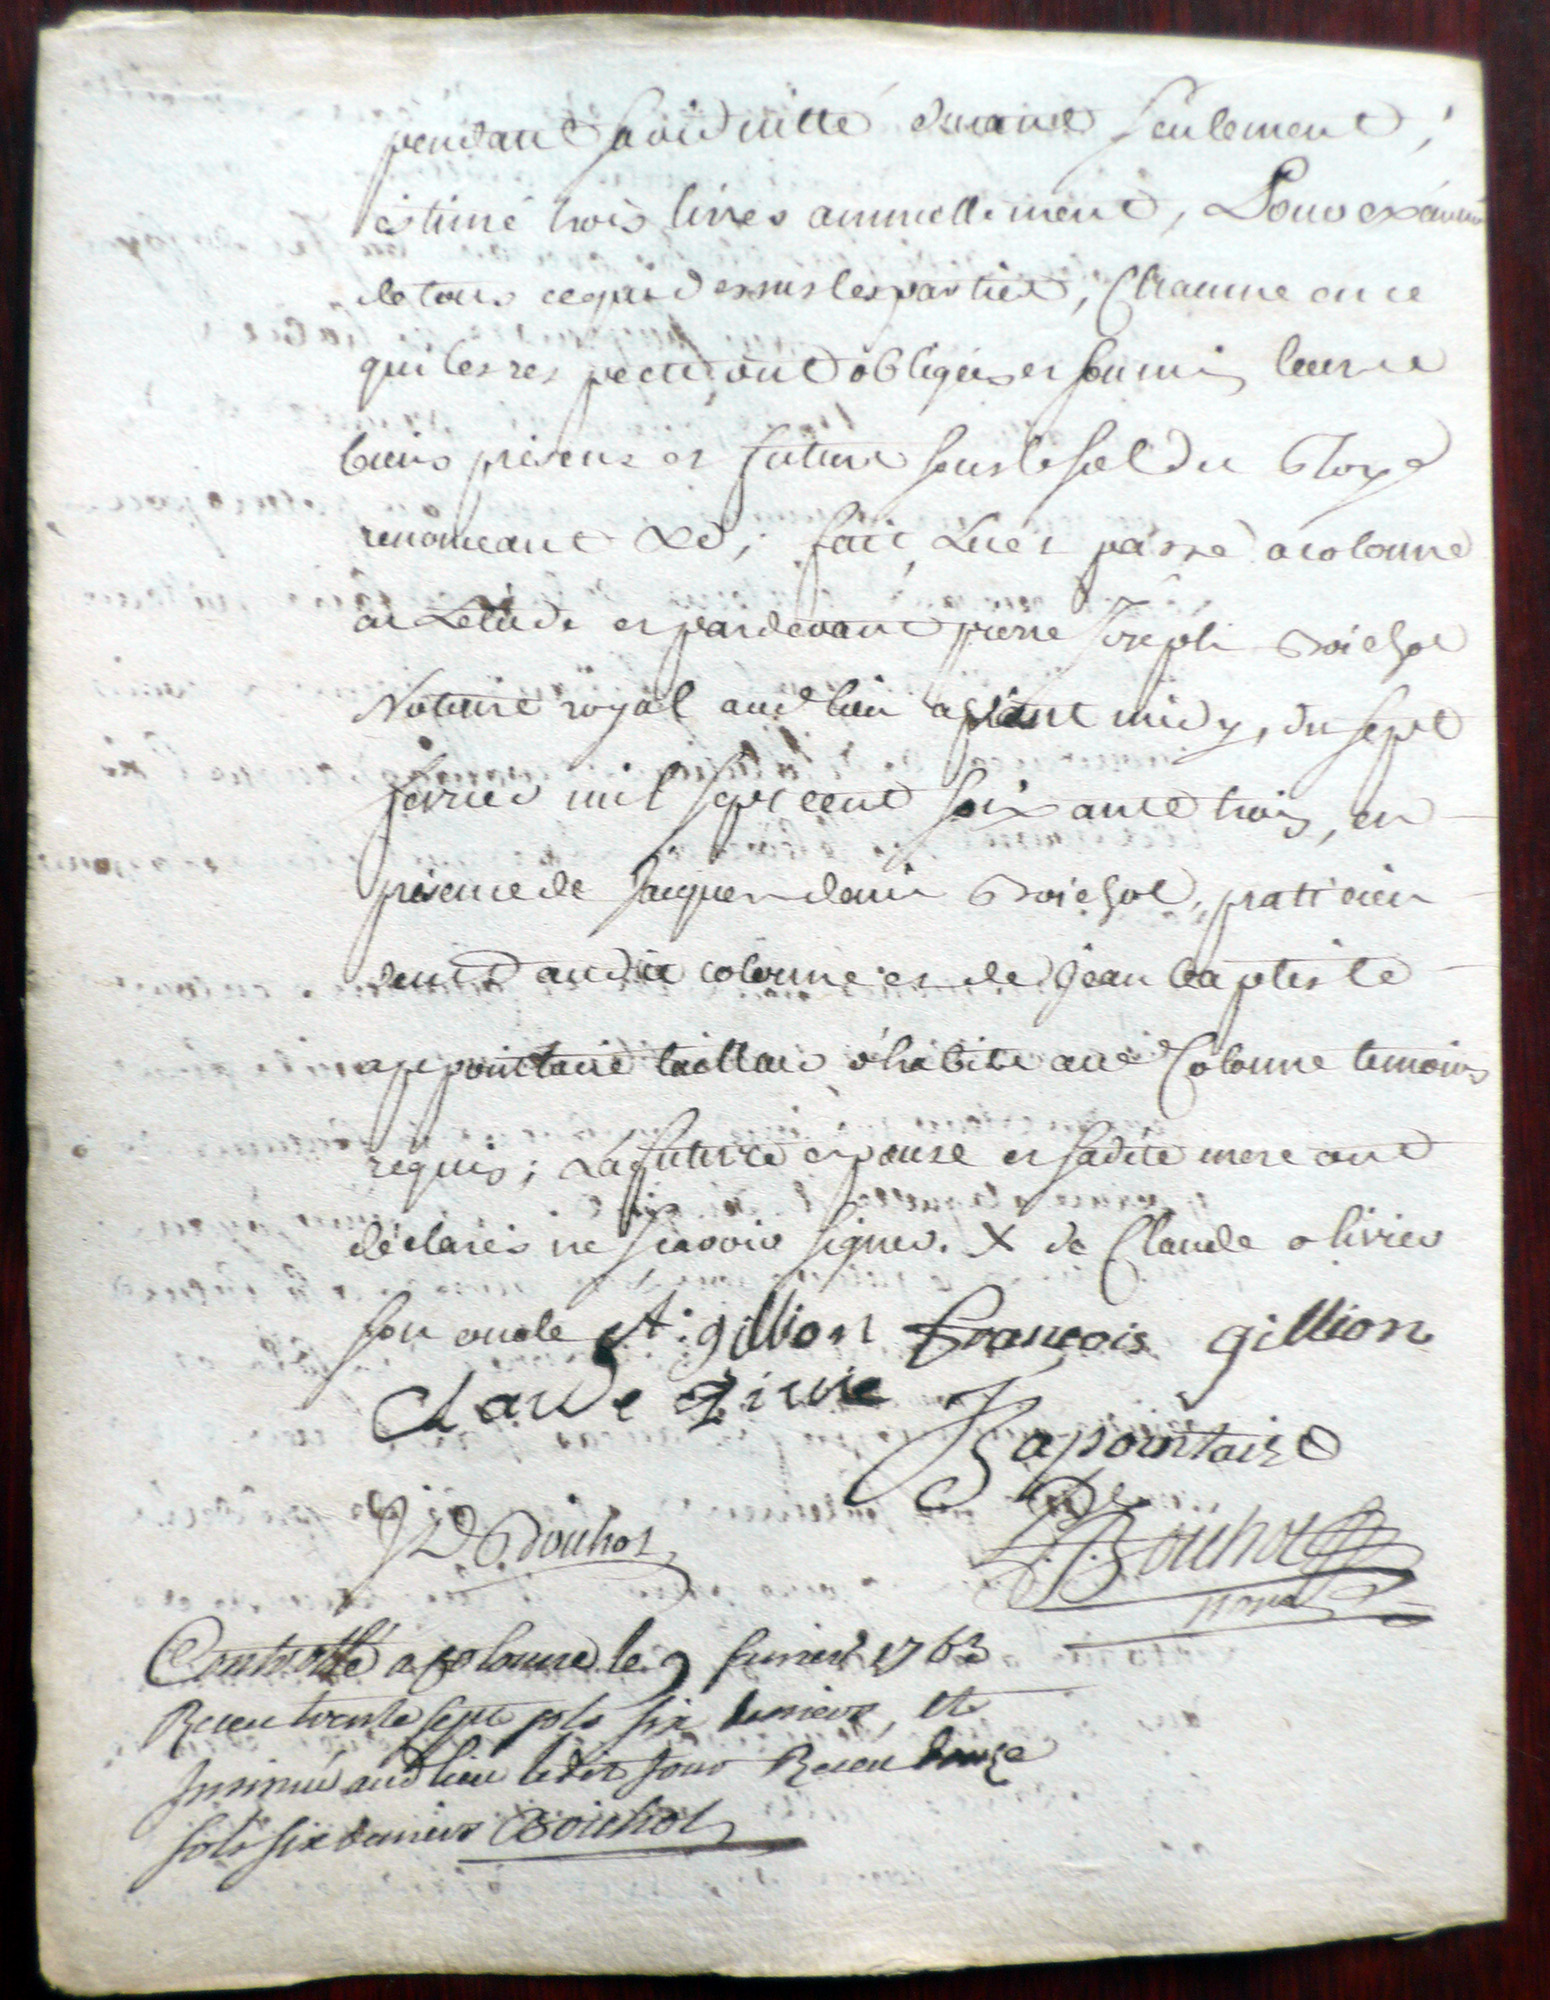 pendant sa viduitté durant seulement,
estimé trois livres annuellement, Pour
de tous ce que dessus les parties, Chacune en ce
qui les respecte, ont obligées et soumis leurs
biens présens et futurs sous le scel du Roy
renonceant &c; fait, Lu et passé a colonne
en Letude et pardevant pierre Joseph Boichot
Notaire royal aud lieu avant midy, du sept
fevrier mil sept cent soixante trois, en
présence de Jacques denis Boichot, pratticien
demt audit colonne et de jean baptiste
appointaire tailleur d'habits aud Colonne temoins
requis; La future epouse et sadite mere ont
déclarés ne scavoir signer. X de Claude olivier
son oncle A: gillion François gillion
Claude
JB apointaire
JD Boichot
P. J. Boichot
nore
Controllé a colonne le 9 fevrier 1763
Receu trente sept sols six deniers, et
Insinué aud lieu ledit jour Receu douze
sols six deniers Boichot